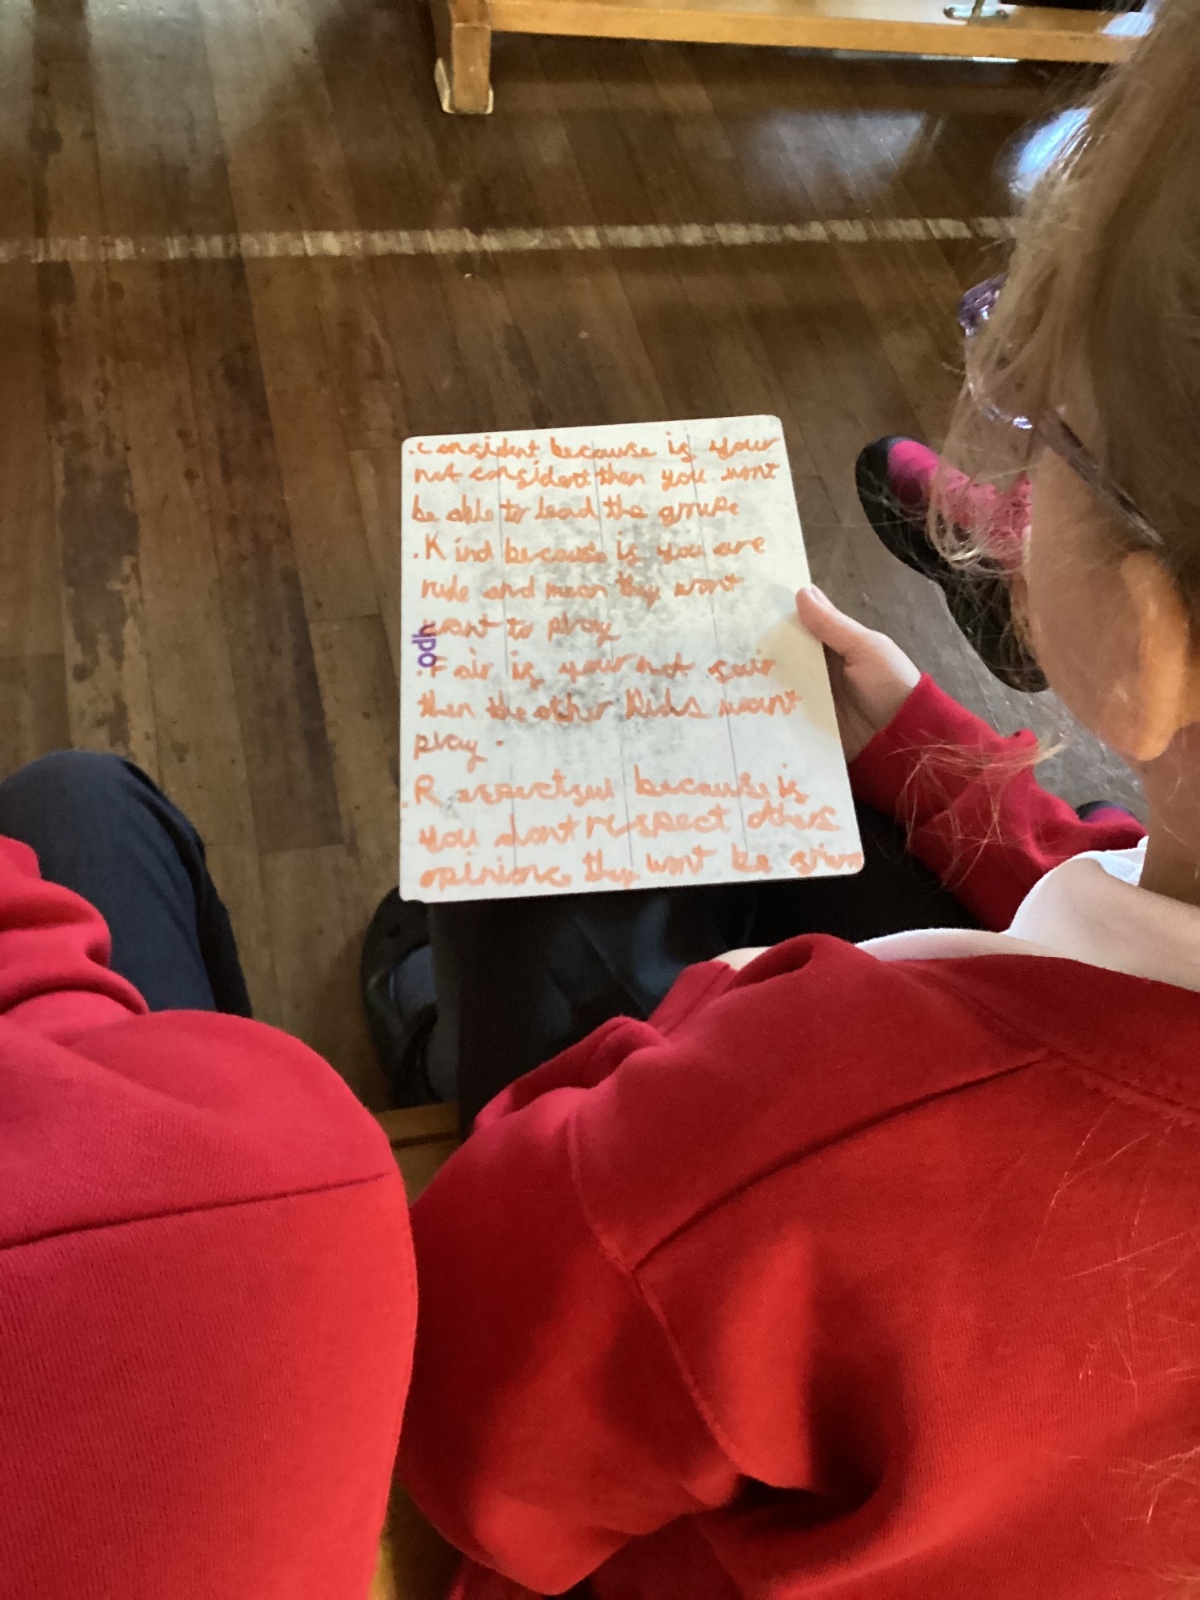 .Consident because is your
not consident then you wont
be able to lead the grupe
.Kind because is you are
rude and mean they wont
want to play
odh
.Fair is your not sair
then the other kids wont
play.
.Respectsul because is
you dont respect others
opinions they wont be